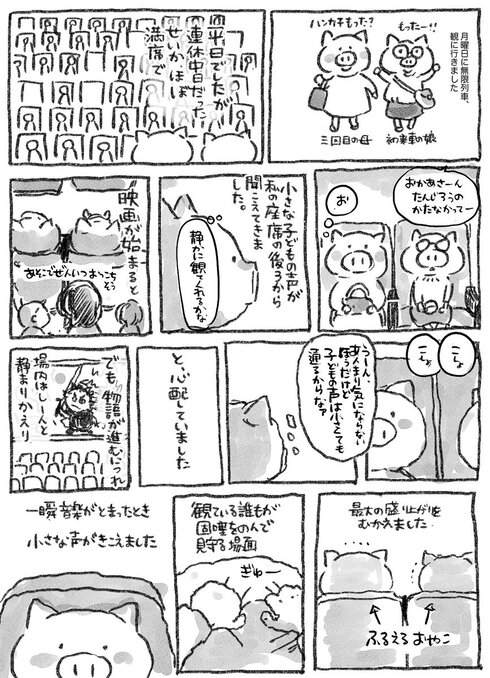 月曜日に無限列車、
観に行きました
もったー!!
ハンカチもった?
初乗車の娘
三回目の母
平日でしたが
連休中日だった
せいか、ほぼ
満席で
おかあさーん
たんじろうの
かたなかってー
お
小さな子どもの声が
私の座席の後ろから
聞こえてきま
した。
静かに観てくれるかな
映画が始まると
あそこでぜんいつ
こしょ
こしょ
うーん、
あんまり気にならない
ほうだけど
子どもの声は小さくても
通るからな?
と、心配していました
でも、物語が進むにつれ
場内はしーんと
静まりかえり
最大の盛り上がりを
むかえました
ふるえるおやこ
観ている誰もが
固唾をのんで
見守る場面
ぎゅー
一瞬音楽がとまったとき
小さな声がきこえました